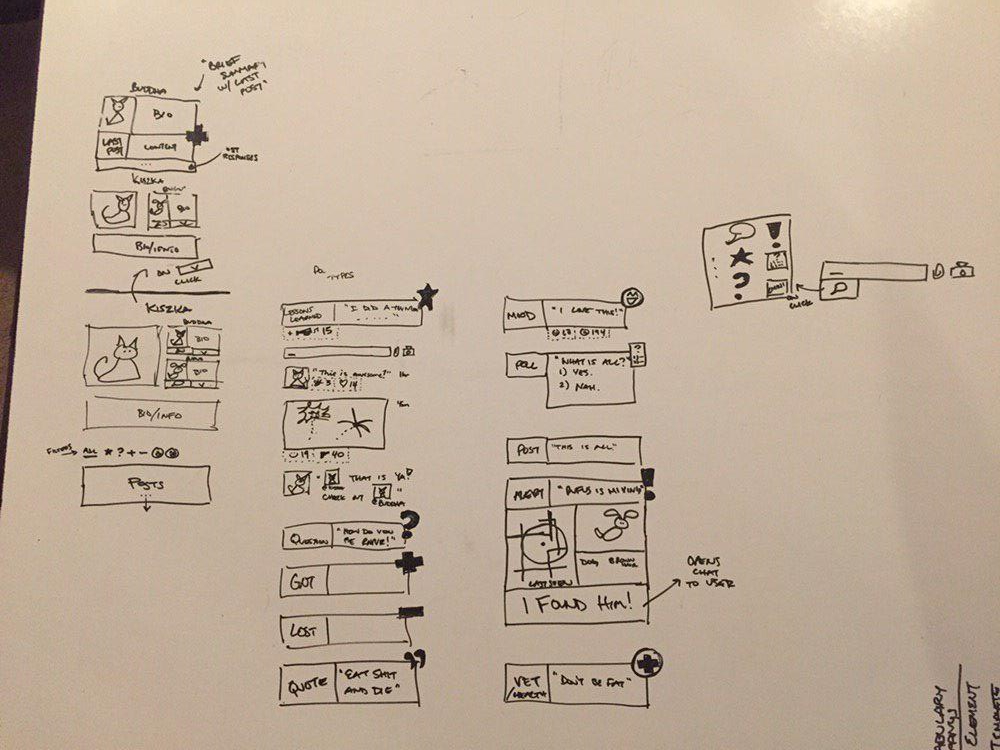 "BRIEF
SUMMARY
W/ LAST
POST"
BUDDHA
BIO
LAST
POST
CONTENT
...
RESPONSES
KISZKA
BIO
BIO/INFO
ON
CLICK
KISZKA
BUDDHA
BIO
BIO
BIO/INFO
FILTERS
ALL * ? + -
POSTS
TYPES
LESSONS
LEARNED
"I DID A THING
....."
15
"THIS IS AWESOME!"
3
14
19
40
THAT IS YA?
CHECK OUT
"
BUDDHA
QUESTION
"HOW DO YOU
?
GOT
LOST
QUOTE
"EAT SHIT
AND DIE"
MOOD
"I LOVE THIS!"
194
POLL
"WHAT IS ALL?"
1) YES.
2) NAH.
POST
"THIS IS ALL"
ALERT
"RUFUS IS MISSING"
!
LAST SEEN
DOG
BROWN
I FOUND HIM!
OPENS
CHAT
TO USER
VET
/HEALTH
"DON'T BE FAT"
!
?
ON
CLICK
ELEMENT